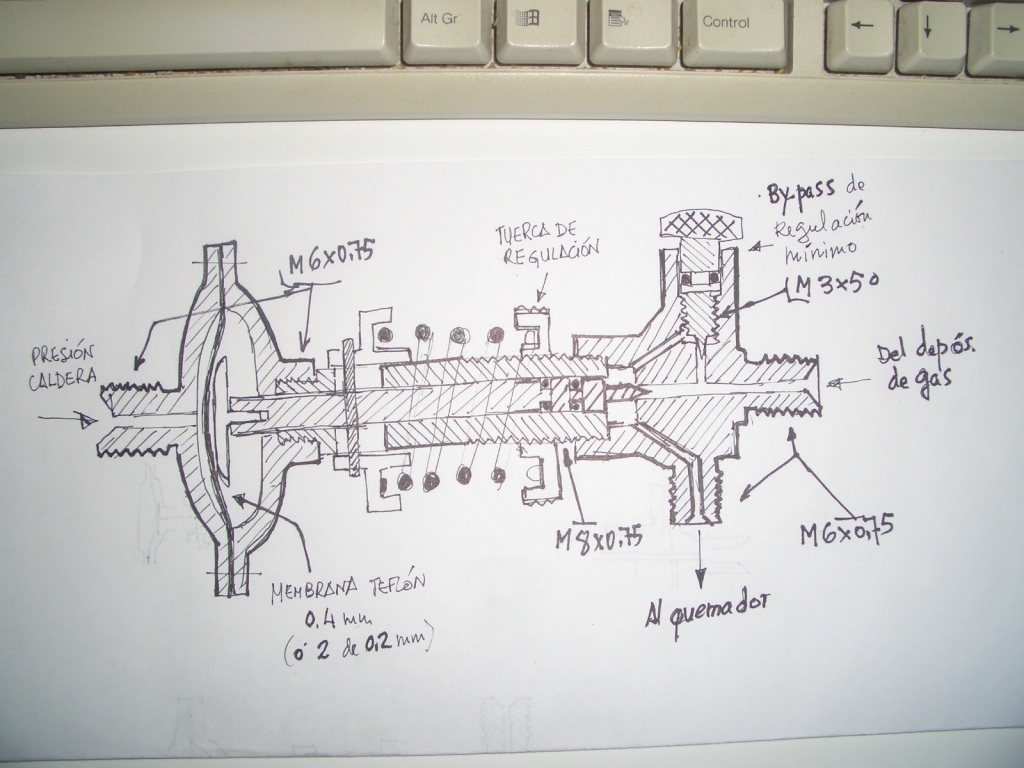 Alt Gr
Control
← ↓ →
By-pass de
Regulación
mínimo
M 3x50
TUERCA DE
REGULACIÓN
M6x0,75
PRESIÓN
CALDERA
Del depós.
de gas
M 8x0,75
M6x0,75
MEMBRANA TEFLÓN
0.4 mm
(ó 2 de 0.2 mm)
Al quemador